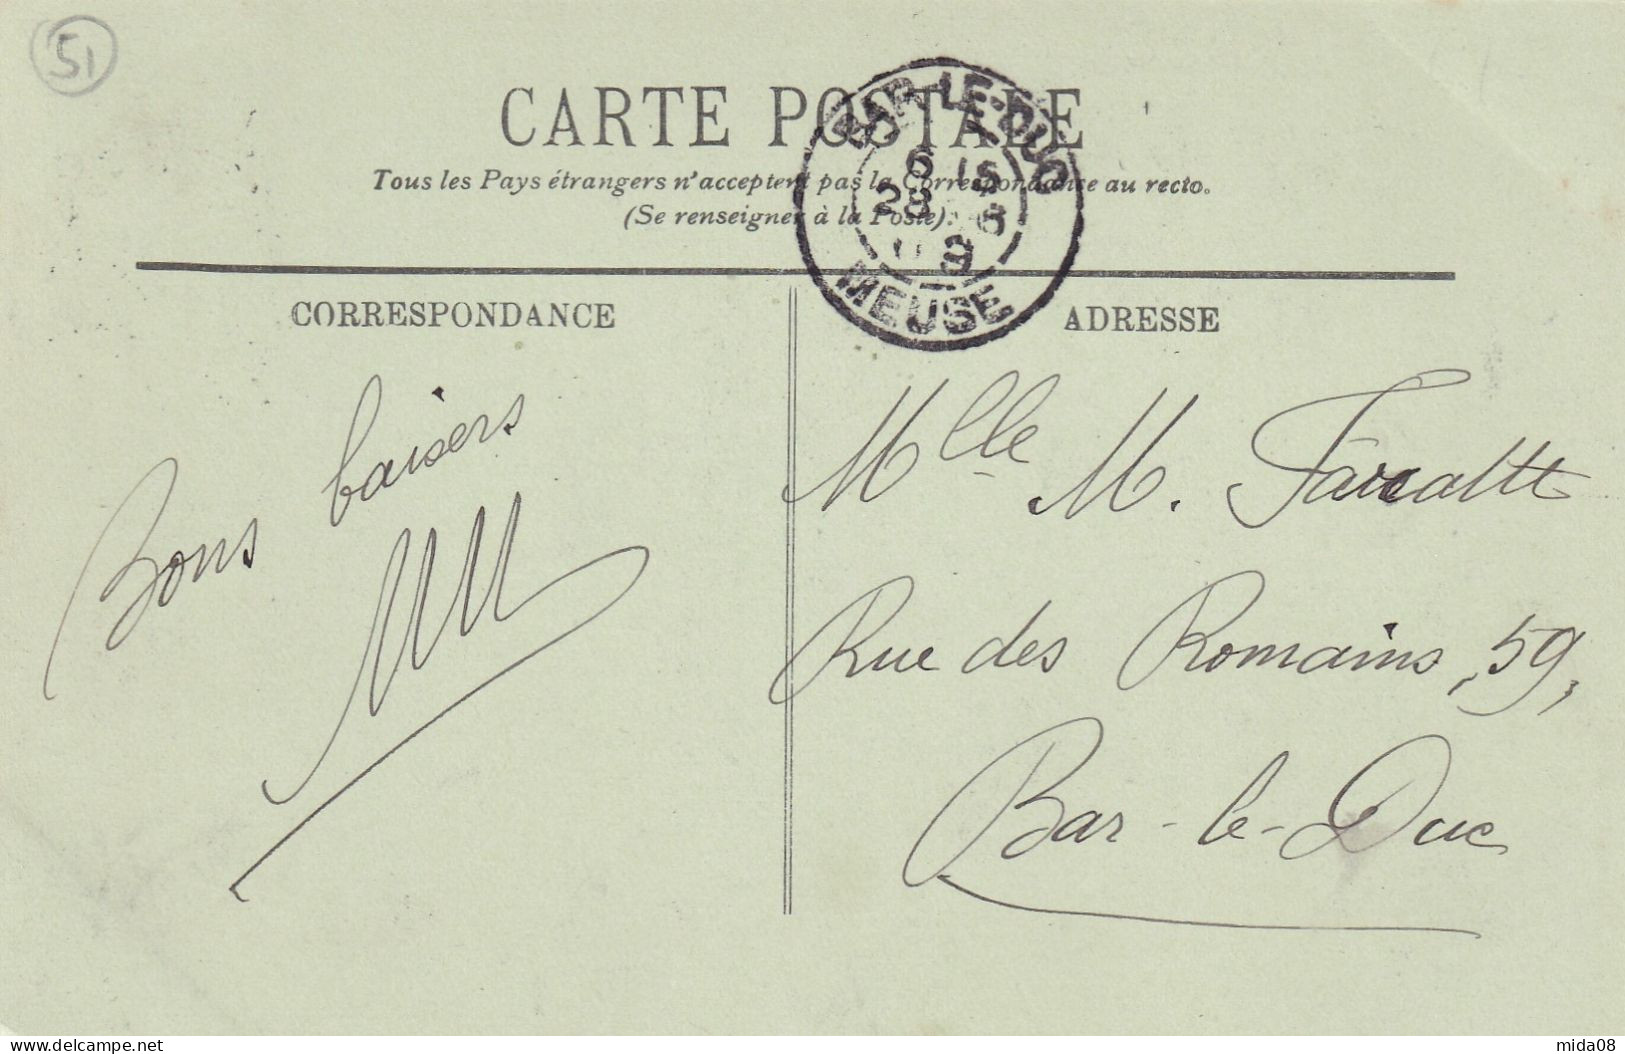 51
CARTE POSTALE
Tous les Pays étrangers n'acceptent pas la Correspondance au recto.
(Se renseigner à la Poste).
BAR-LE-DUC
6 15
28
MEUSE
CORRESPONDANCE
ADRESSE
Bons baisers
Mlle M.
Rue des Romains, 59,
Bar-le-Duc
delcampe.net
mida08